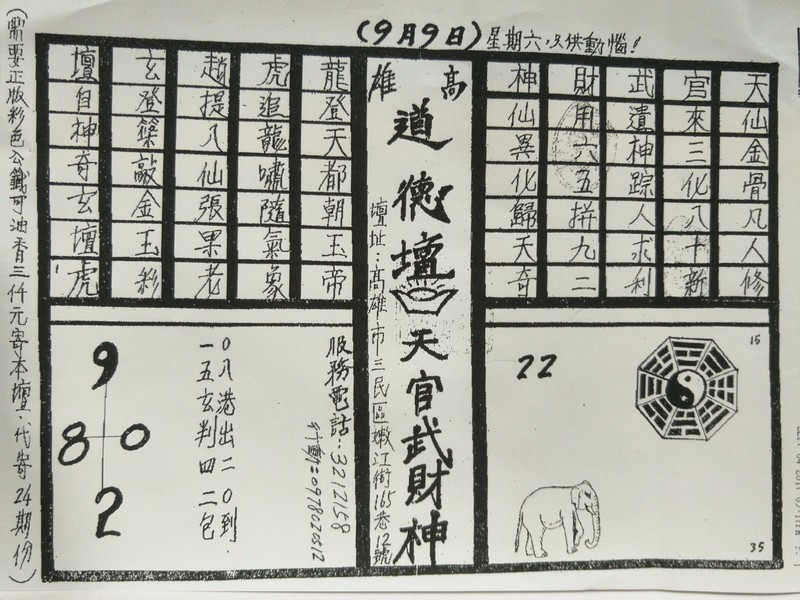 (9月9日)星期六,只供動惱!
天仙金骨凡人修
官來三化八十新
武遺神踪人求利
財用六五拼九二
神仙異化歸天奇
高雄
道德壇
天官武財神
壇址:高雄市三民區嫩江街165巷12號
龍登天都朝玉帝
虎追龍嘯隨氣象
趙提八仙張果老
玄登築敲金玉彩
壇自神奇玄壇虎
15
22
35
服務電話:3212158
行動:0978020312
0八港出二0到.
一五玄判四二包
9
8 0
2
(需要正版彩色公籤可油香三仟元寄本壇.代寄24期份)